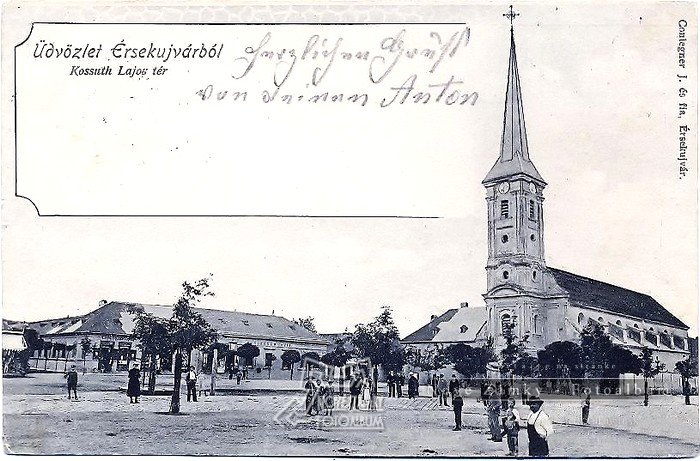 Üdvözlet Érsekujvárból
Kossuth Lajos tér
Herzlichen Gruß
von deinem Anton
Conlegner J. és fia, Érsekujvár.
FOTÓALBUM